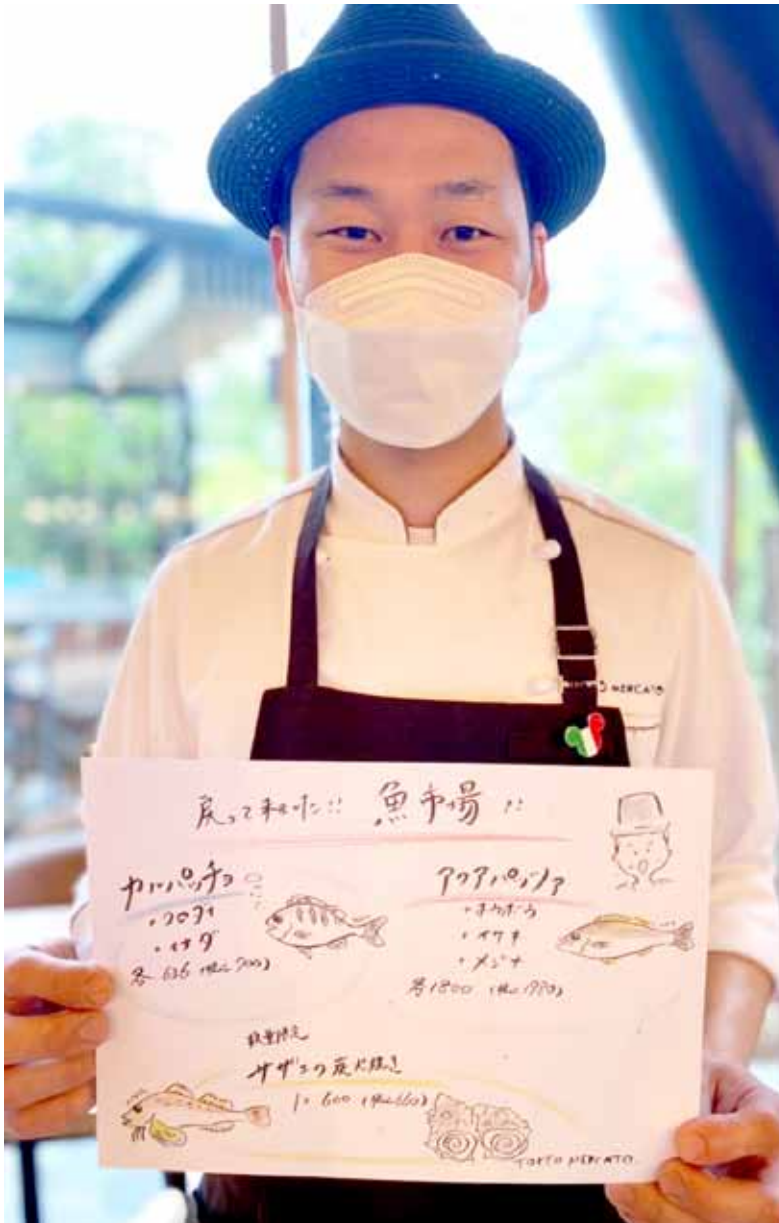 MERCATO
戻って来ました!! 魚市場!!
カルパッチョ
・イナダ
各 636 (税込700)
アクアパッツァ
・ホウボウ
・イサキ
・メジナ
各1800 (税込1980)
数量限定
サザエの炭火焼き
1コ 600 (税込660)
TOKYO MERCATO